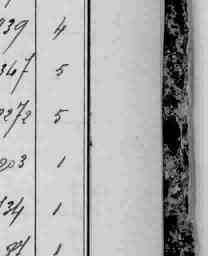 139 4
347 5
2272 5
203 1
134 1
94 1